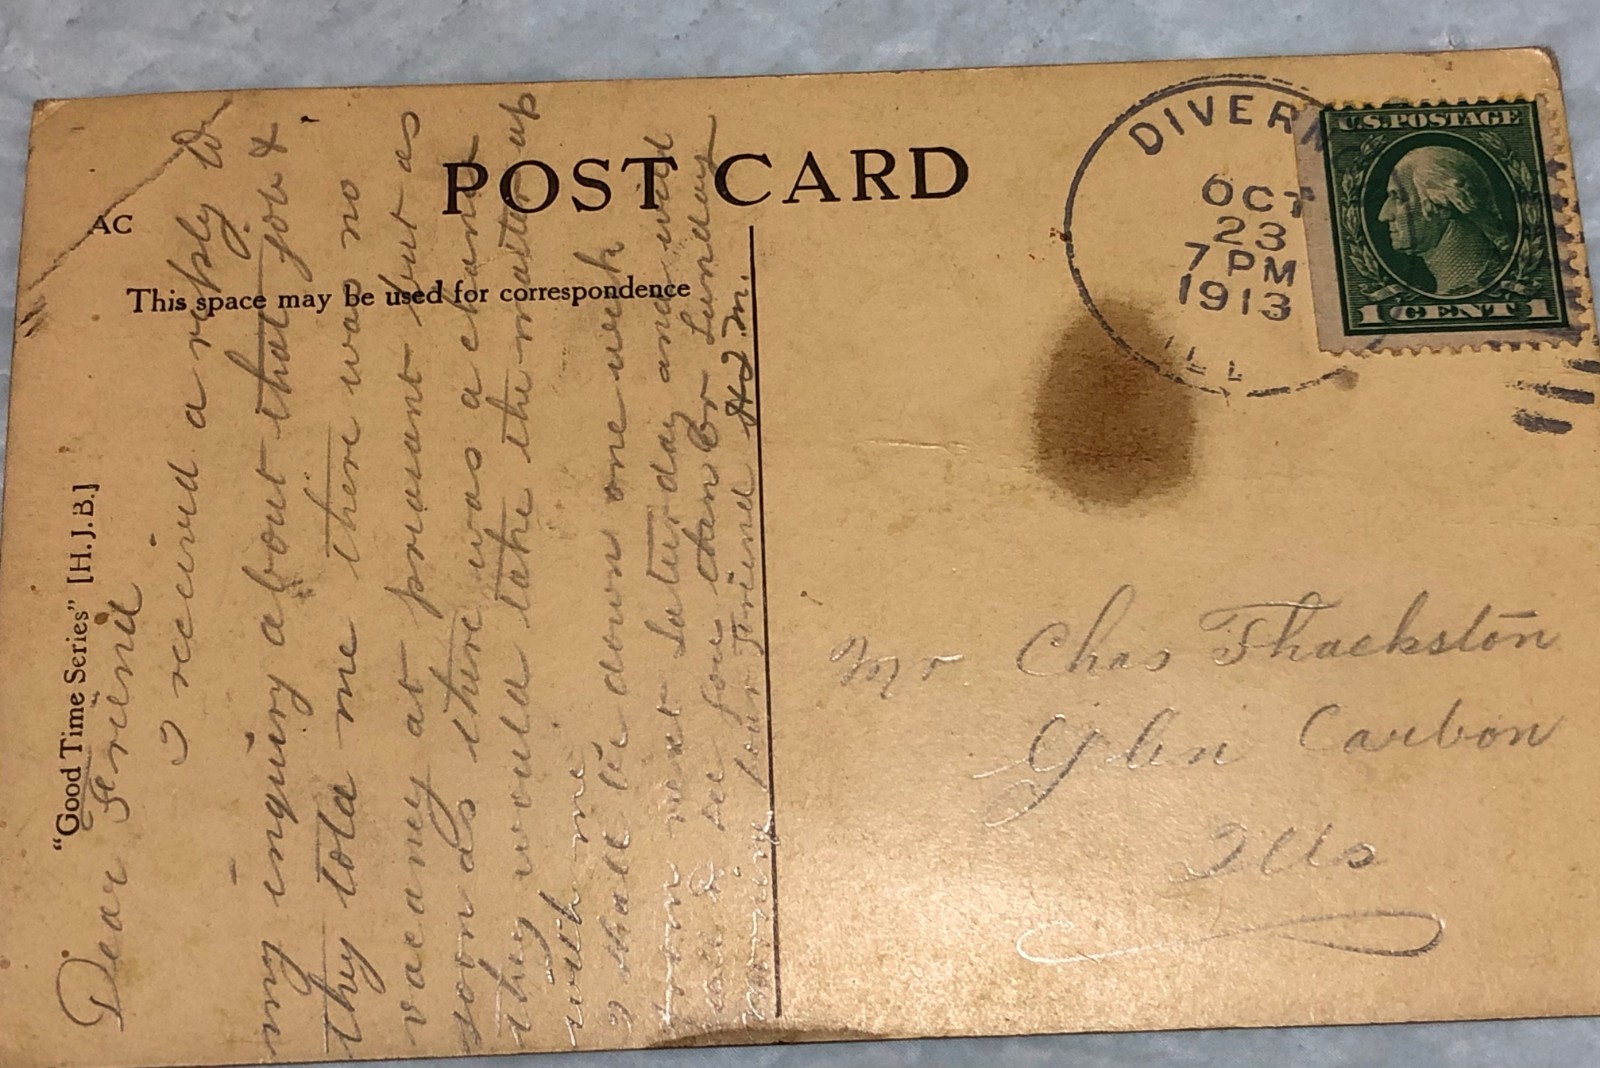 AC
POST CARD
This space may be used for correspondence
"Good Time Series" [H.J.B.]
Dear Friend
I received a reply to
my inquiry about that job &
they told me there was no
vacancy at preasant but as
soon as there was a chance
they would take the matter up
with me
I shall be down one week
from next Saturday and will
call & see you then or Sunday
morning your Friend
DIVERN
OCT
23
7 PM
1913
ILL
U.S. POSTAGE
1 CENT 1
Mr Chas Thackston
Glen Carbon
Ills